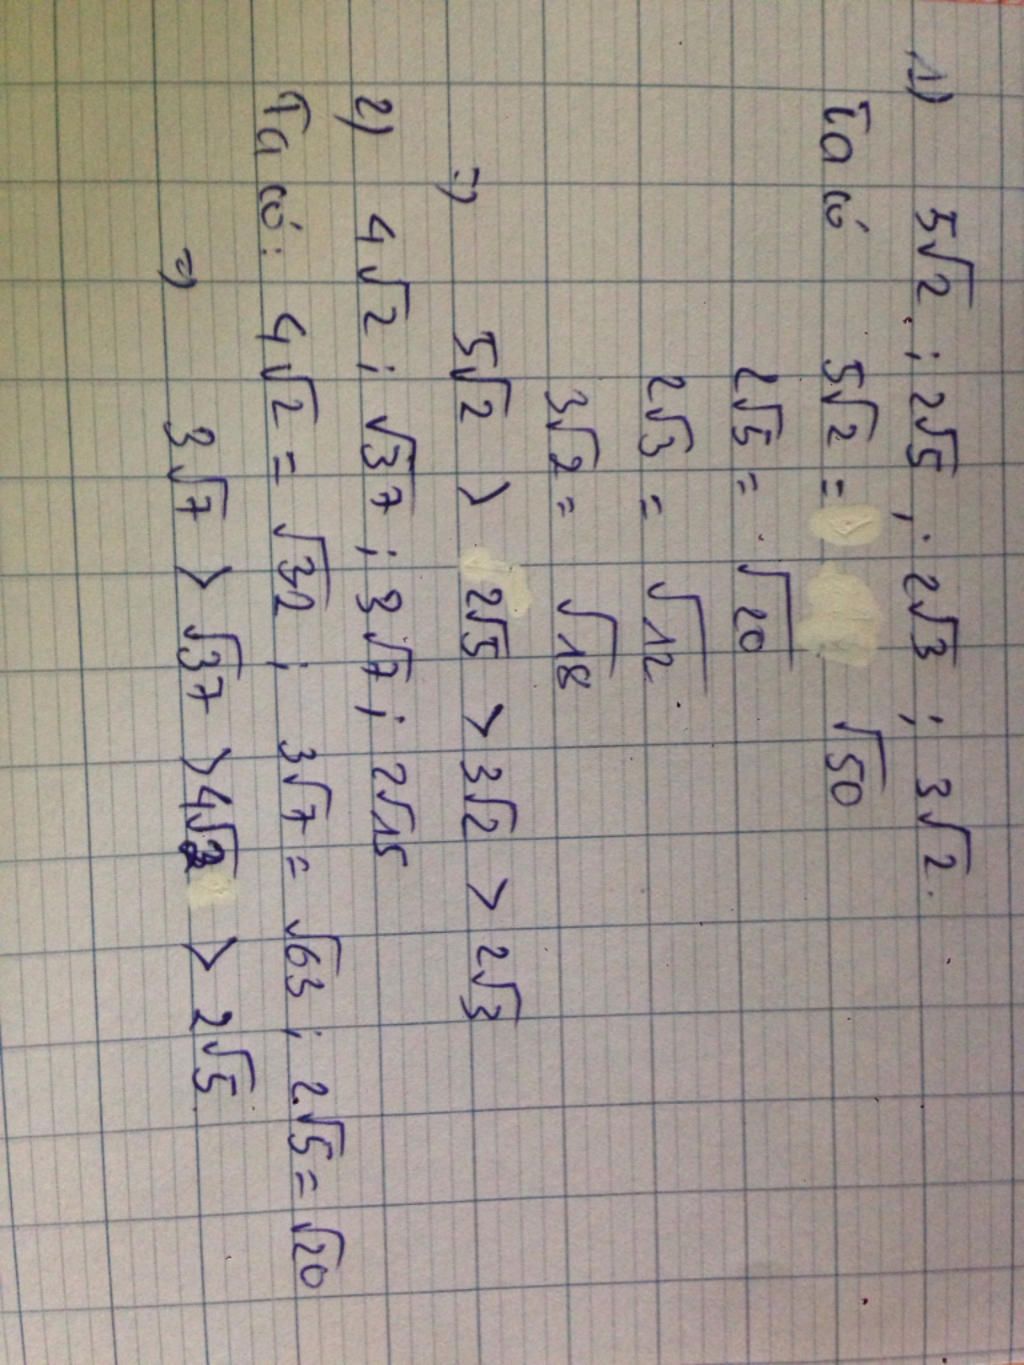 1) 5√2 ; 2√5 ; 2√3 ; 3√2.
Ta có 5√2 = √50
2√5 = √20
2√3 = √12
3√2 = √18
=) 5√2 > 2√5 > 3√2 > 2√3
2) 4√2 ; √37 ; 3√7 ; 2√15
Ta có: 4√2 = √32 ; 3√7 = √63 ; 2√5 = √20
=) 3√7 > √37 > 4√2 > 2√5